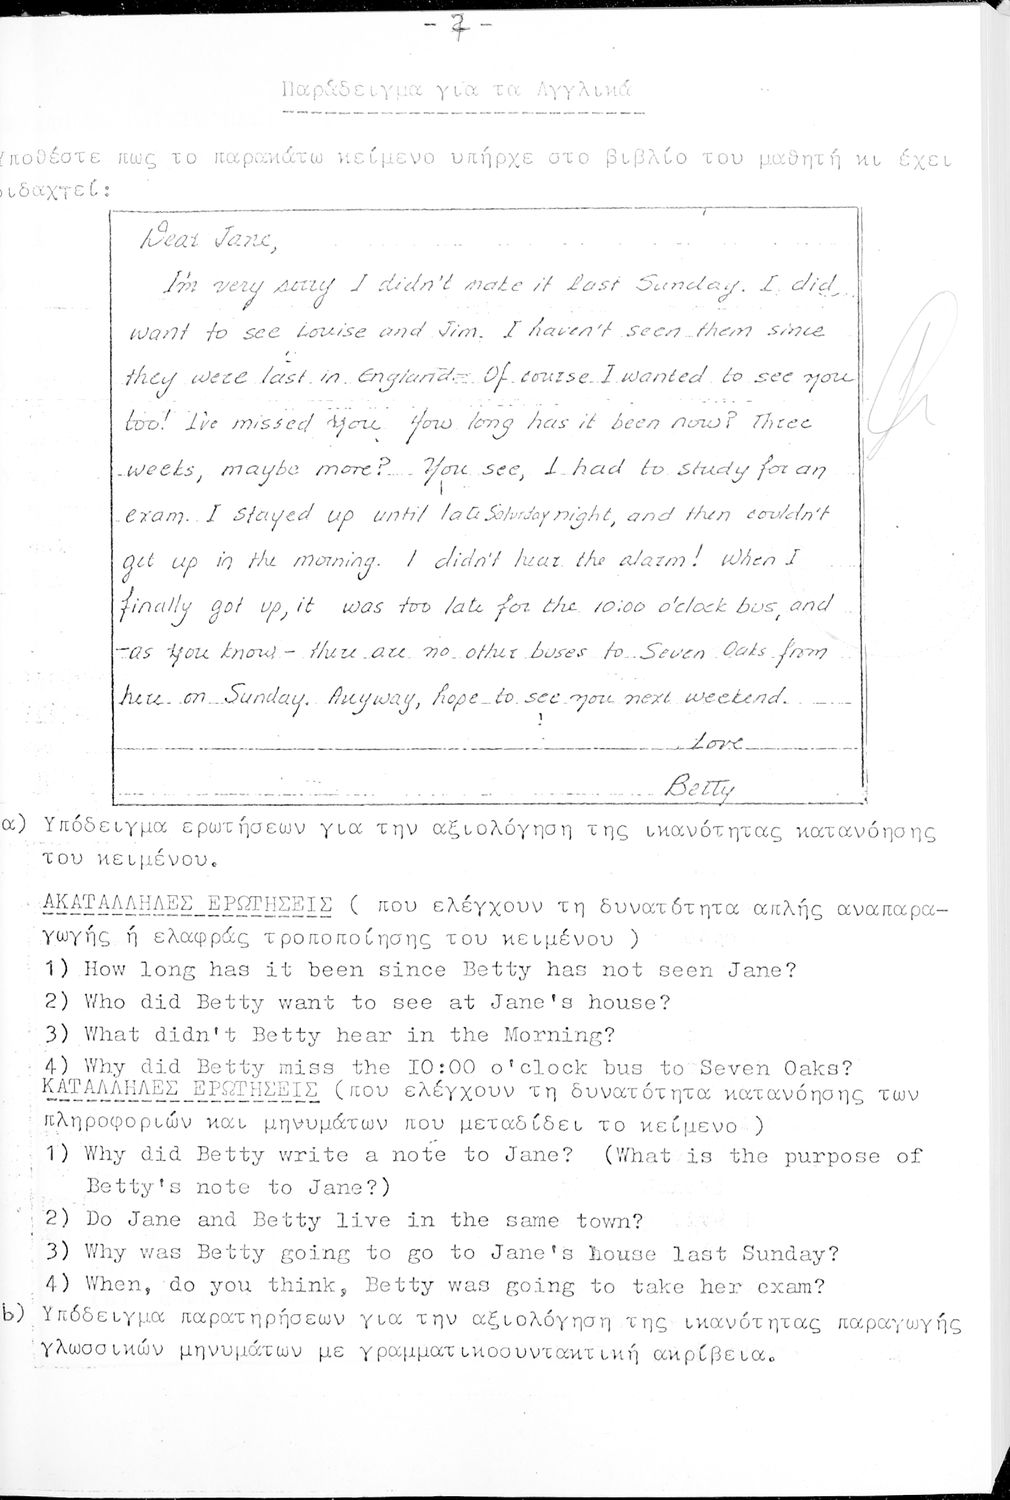 - 7 -
Παράδειγμα για τα Αγγλικά
Υποθέστε πως το παρακάτω κείμενο υπήρχε στο βιβλίο του μαθητή κι έχει
διδαχτεί:
Dear Jane,
I'm very sorry I didn't make it last Sunday. I did
want to see Louise and Jim. I haven't seen them since
they were last in England. Of course I wanted to see you
too! I've missed you. How long has it been now? Three
weeks, maybe more? You see, I had to study for an
exam. I stayed up until late Saturday night, and then couldn't
get up in the morning. I didn't hear the alarm! When I
finally got up, it was too late for the 10:00 o'clock bus, and
-as you know- there are no other buses to Seven Oaks from
here on Sunday. Anyway, hope to see you next weekend.
Love
Betty
α) Υπόδειγμα ερωτήσεων για την αξιολόγηση της ικανότητας κατανόησης
του κειμένου.
ΑΚΑΤΑΛΛΗΛΕΣ ΕΡΩΤΗΣΕΙΣ ( που ελέγχουν τη δυνατότητα απλής αναπαρα-
γωγής ή ελαφράς τροποποίησης του κειμένου )
1) How long has it been since Betty has not seen Jane?
2) Who did Betty want to see at Jane's house?
3) What didn't Betty hear in the Morning?
4) Why did Betty miss the IO:00 o'clock bus to Seven Oaks?
ΚΑΤΑΛΛΗΛΕΣ ΕΡΩΤΗΣΕΙΣ (που ελέγχουν τη δυνατότητα κατανόησης των
πληροφοριών και μηνυμάτων που μεταδίδει το κείμενο )
1) Why did Betty write a note to Jane? (What is the purpose of
Betty's note to Jane?)
2) Do Jane and Betty live in the same town?
3) Why was Betty going to go to Jane's house last Sunday?
4) When, do you think, Betty was going to take her exam?
b) Υπόδειγμα παρατηρήσεων για την αξιολόγηση της ικανότητας παραγωγής
γλωσσικών μηνυμάτων με γραμματικοσυντακτική ακρίβεια.